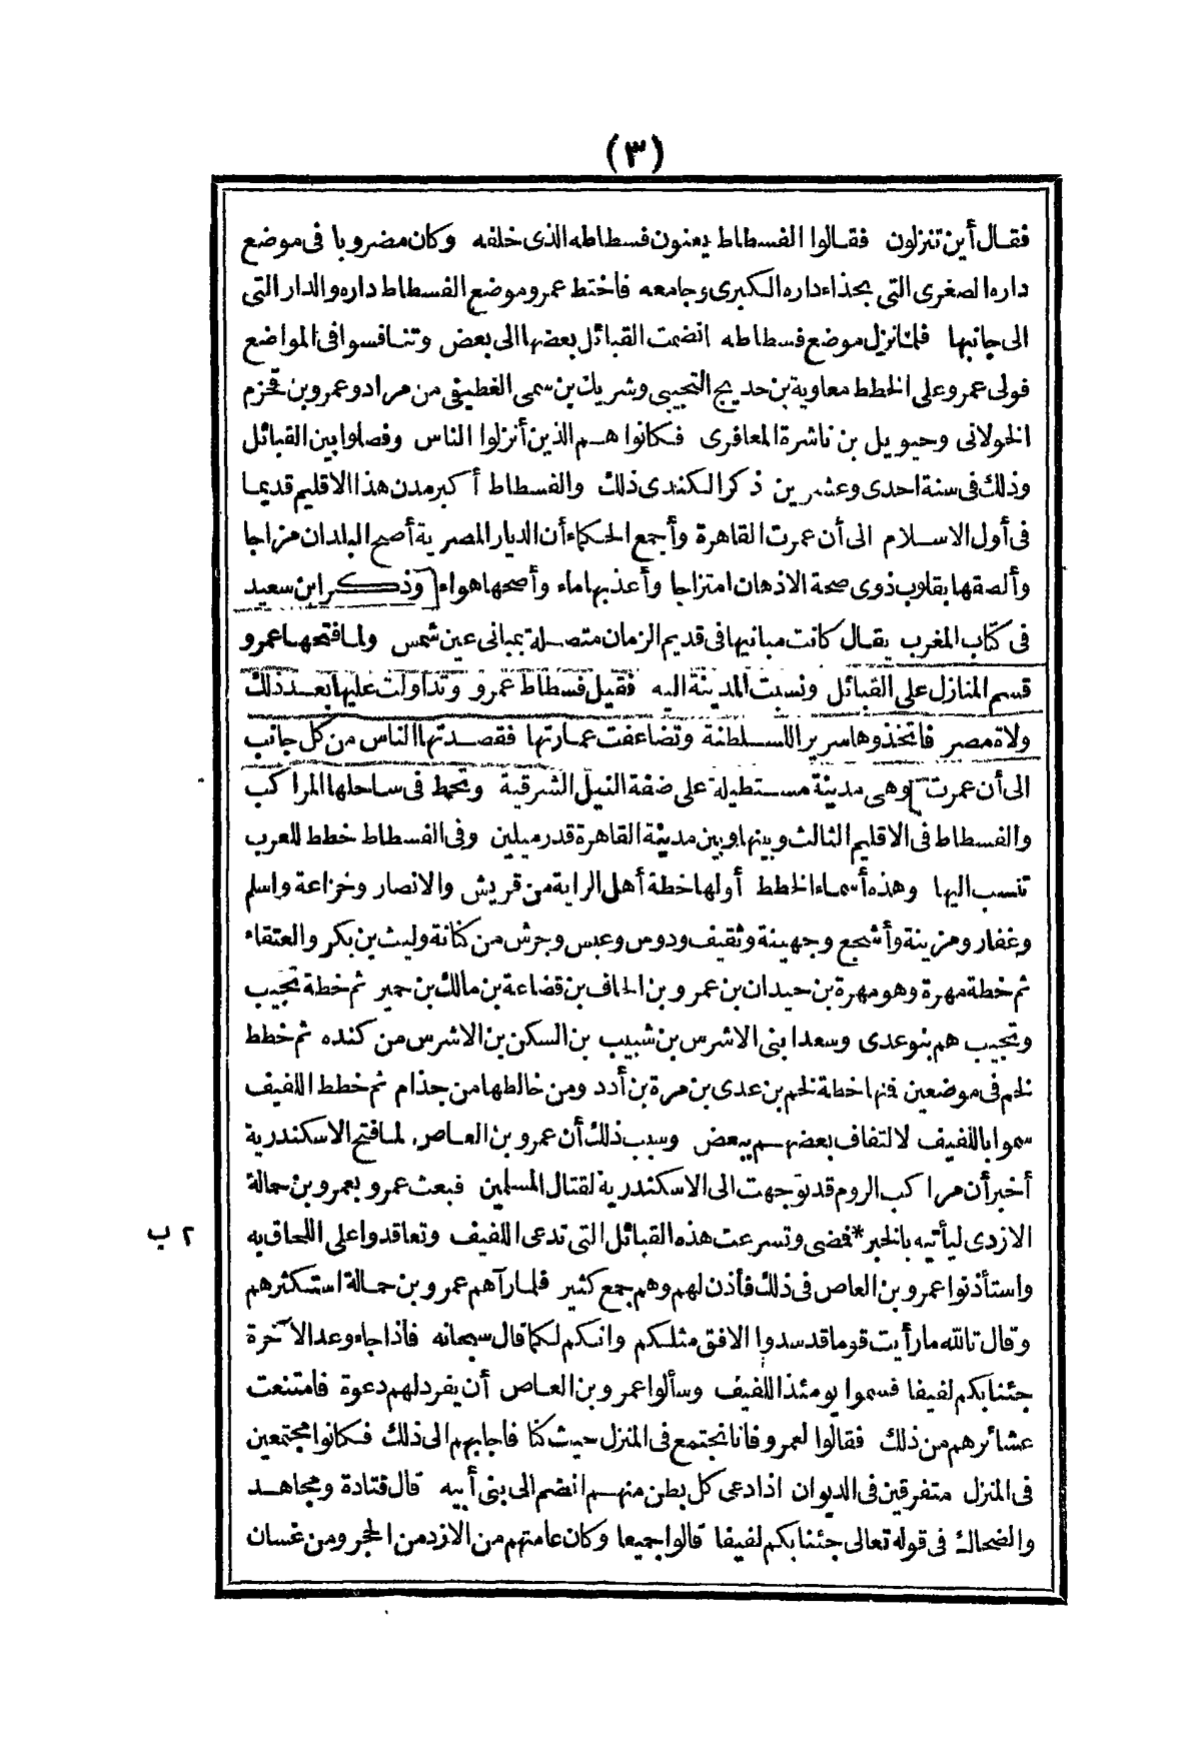 (٣)
فقال أين تنزلون فقالوا الفسطاط يعنون فسطاطه الذى خلفه وكان مضروبا فى موضع
داره الصغرى التى بحذاء داره الكبرى وجامعه فاختط عمرو موضع الفسطاط داره والدار التى
الى جانبها فلما نزل موضع فسطاطه انضمت القبائل بعضها الى بعض وتنافسوا فى المواضع
فولى عمرو على الخطط معاوية بن حديج التجيبى وشريك بن سمى الغطيفى من مراد وعمرو بن قحزم
الخولانى وحيويل بن ناشرة المعافرى فكانوا هم الذين أنزلوا الناس وفصلوا بين القبائل
وذلك فى سنة احدى وعشرين ذكر الكندى ذلك والفسطاط أكبر مدن هذا الاقليم قديما
فى أول الاسلام الى أن عمرت القاهرة وأجمع الحكماء أن الديار المصرية أصح البلدان مزاجا
وألصقها بقلوب ذوى صحة الاذهان امتزاجا وأعذبها ماء وأصحها هواء [وذكر ابن سعيد
فى كتاب المغرب يقال كانت مبانيها فى قديم الزمان متصلة بمبانى عين شمس ولما فتحها عمرو
قسم المنازل على القبائل ونسبت المدينة اليه فقيل فسطاط عمرو وتداولت عليها بعد ذلك
ولاة مصر فاتخذوها سرير اللسلطنة وتضاعفت عمارتها فقصدتها الناس من كل جانب
الى أن عمرت] وهى مدينة مستطيلة على ضفة النيل الشرقية وتحط فى ساحلها المراكب
والفسطاط فى الاقليم الثالث وبينها وبين مدينة القاهرة قدر ميلين وفى الفسطاط خطط للعرب
تنسب اليها وهذه أسماء الخطط أولها خطة أهل الراية من قريش والانصار وخزاعة واسلم
وغفار ومزينة وأشجع وجهينة وثقيف ودوس وعبس وجرش من كنانة وليث بن بكر والعتقاء
ثم خطة مهرة وهو مهرة بن حيدان بن عمرو بن الحاف بن قضاعة بن مالك بن حمير ثم خطة تجيب
وتجيب هم بنو عدى وسعد ابنى الاشرس بن شبيب بن السكن بن الاشرس من كنده ثم خطط
لخم فى موضعين فمنها خطة لخم بن عدى بن مرة بن أدد ومن خالطها من جذام ثم خطط اللفيف
سموا باللفيف لالتفاف بعضهم ببعض وسبب ذلك أن عمرو بن العاص لما فتح الاسكندرية
أخبر أن مراكب الروم قد توجهت الى الاسكندرية لقتال المسلمين فبعث عمرو بعمرو بن حمالة
الازدى ليأتيه بالخبر* فمضى وتسرعت هذه القبائل التى تدعى اللفيف وتعاقدوا على اللحاق به
٢ ب
واستأذنوا عمرو بن العاص فى ذلك فأذن لهم وهم جمع كثير فلما رآهم عمرو بن حمالة استكثرهم
وقال تالله ما رأيت قوما قد سدوا الافق مثلكم وانكم لكما قال سبحانه فاذا جاء وعد الآخرة
جئنا بكم لفيفا فسموا يومئذ اللفيف وسألوا عمرو بن العاص أن يفرد لهم دعوة فامتنعت
عشائرهم من ذلك فقالوا لعمرو فانا نجتمع فى المنزل حيث كنا فاجابهم الى ذلك فكانوا مجتمعين
فى المنزل متفرقين فى الديوان اذا دعى كل بطن منهم انضم الى بنى أبيه قال قتادة ومجاهد
والضحاك فى قوله تعالى جئنا بكم لفيفا قالوا جميعا وكان عامتهم من الازد من الحجر ومن غسان